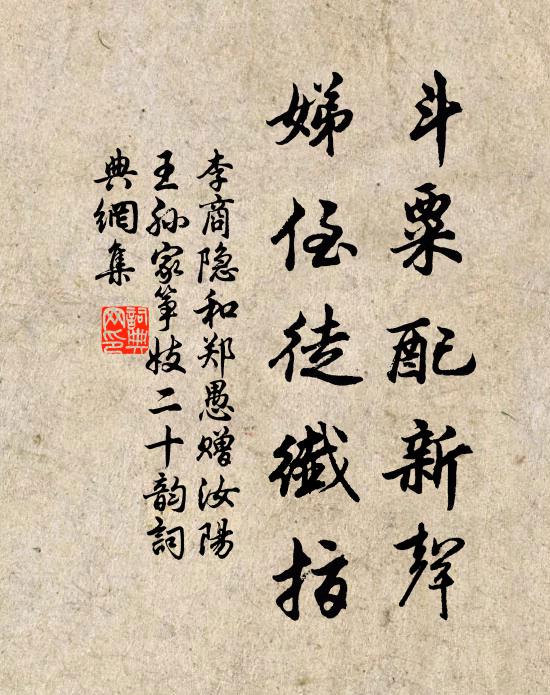 斗粟配新聲
娣侄徒纖指
李商隐和郑愚赠汝陽
王孙家筝妓二十韵詞
典網集
詞典
网印